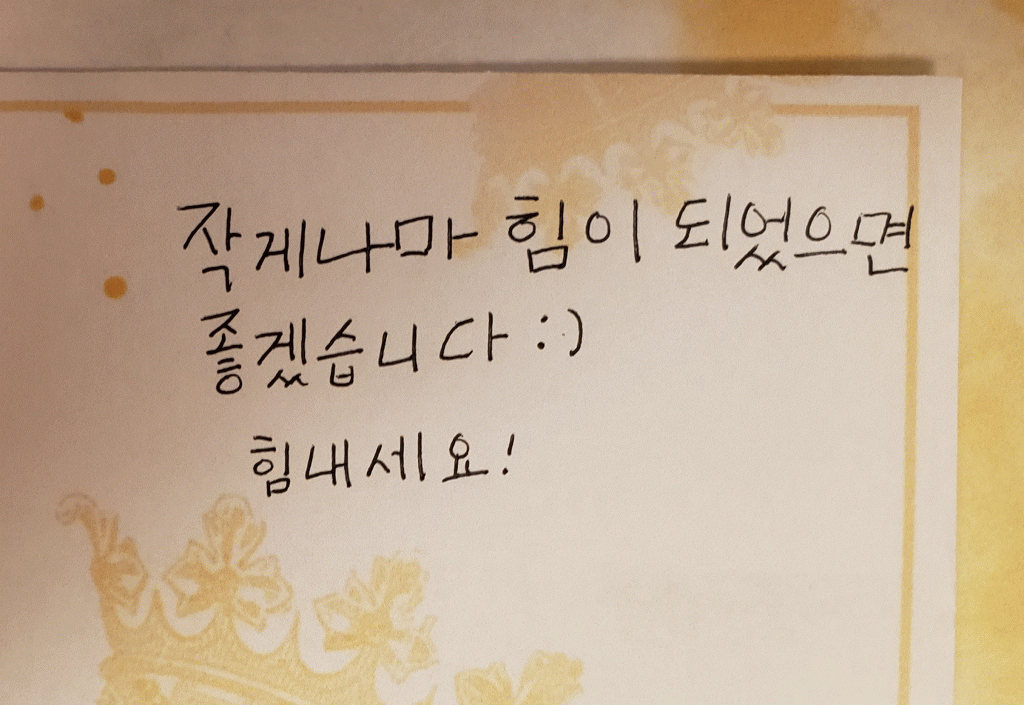 작게나마 힘이 되었으면
좋겠습니다 :)
힘내세요!